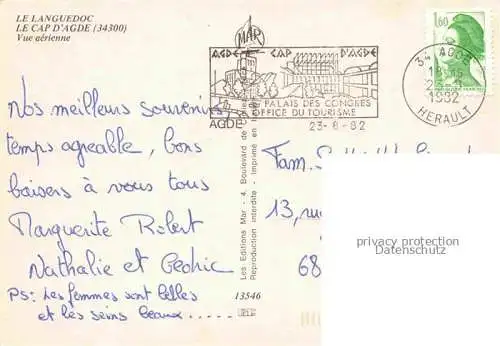 LE LANGUEDOC
LE CAP D'AGDE (34300)
Vue aérienne
MAR
AGDE CAP D'AGDE
PALAIS DES CONGRES
OFFICE DU TOURISME
AGDE
23-8-82
34 AGDE
1982
HERAULT
1,60
Nos meilleurs souvenirs
temps agreable, bons
baisers à vous tous
Marguerite Robert
Nathalie et Cedric
PS: Les femmes sont belles
et les seins beaux.....
Les Editions Mar - 4, Boulevard de
Reproduction interdite - Imprimé en
13546
Fam.
13, rue
68
privacy protection
Datenschutz